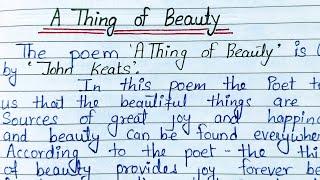 A Thing of Beauty
The poem 'A Thing of Beauty' is
by 'John Keats'.
In this poem the Poet
us that the beautiful things are
Sources of great joy and
and beauty can be found
According to the poet - the
of beauty provides joy forever